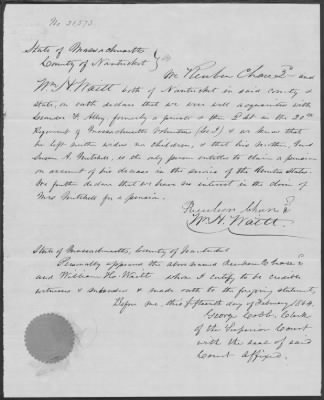 No. 31573
State of Massachusetts
County of Nantucket } ss
We Reuben Chase 2d and
Wm H. Waitt both of Nantucket in said county &
state, on oath declare that we are well acquainted with
Leander F. Alley formerly a private & then 2d Lt in the 20th
Regiment of Massachusetts Volunteers (Co. I) & we know that
he left neither widow nor children, & that his mother, Mrs
Susan A. Mitchell, is the only person entitled to claim a pension
on account of his decease in the service of the United States.
We further declare that we have no interest in the claim of
Mrs Mitchell for a pension.
Reuben Chase 2d
Wm. H. Waitt.
State of Massachusetts, County of Nantucket
Personally appeared the above named Reuben Chase 2d
and William H. Waitt whom I certify to be credible
witnesses & made oath to the forgoing statement,
Before me, this fifteenth day of February 1864.
George Cobb, Clerk
of the Superior Court
with the seal of said
Court affixed.